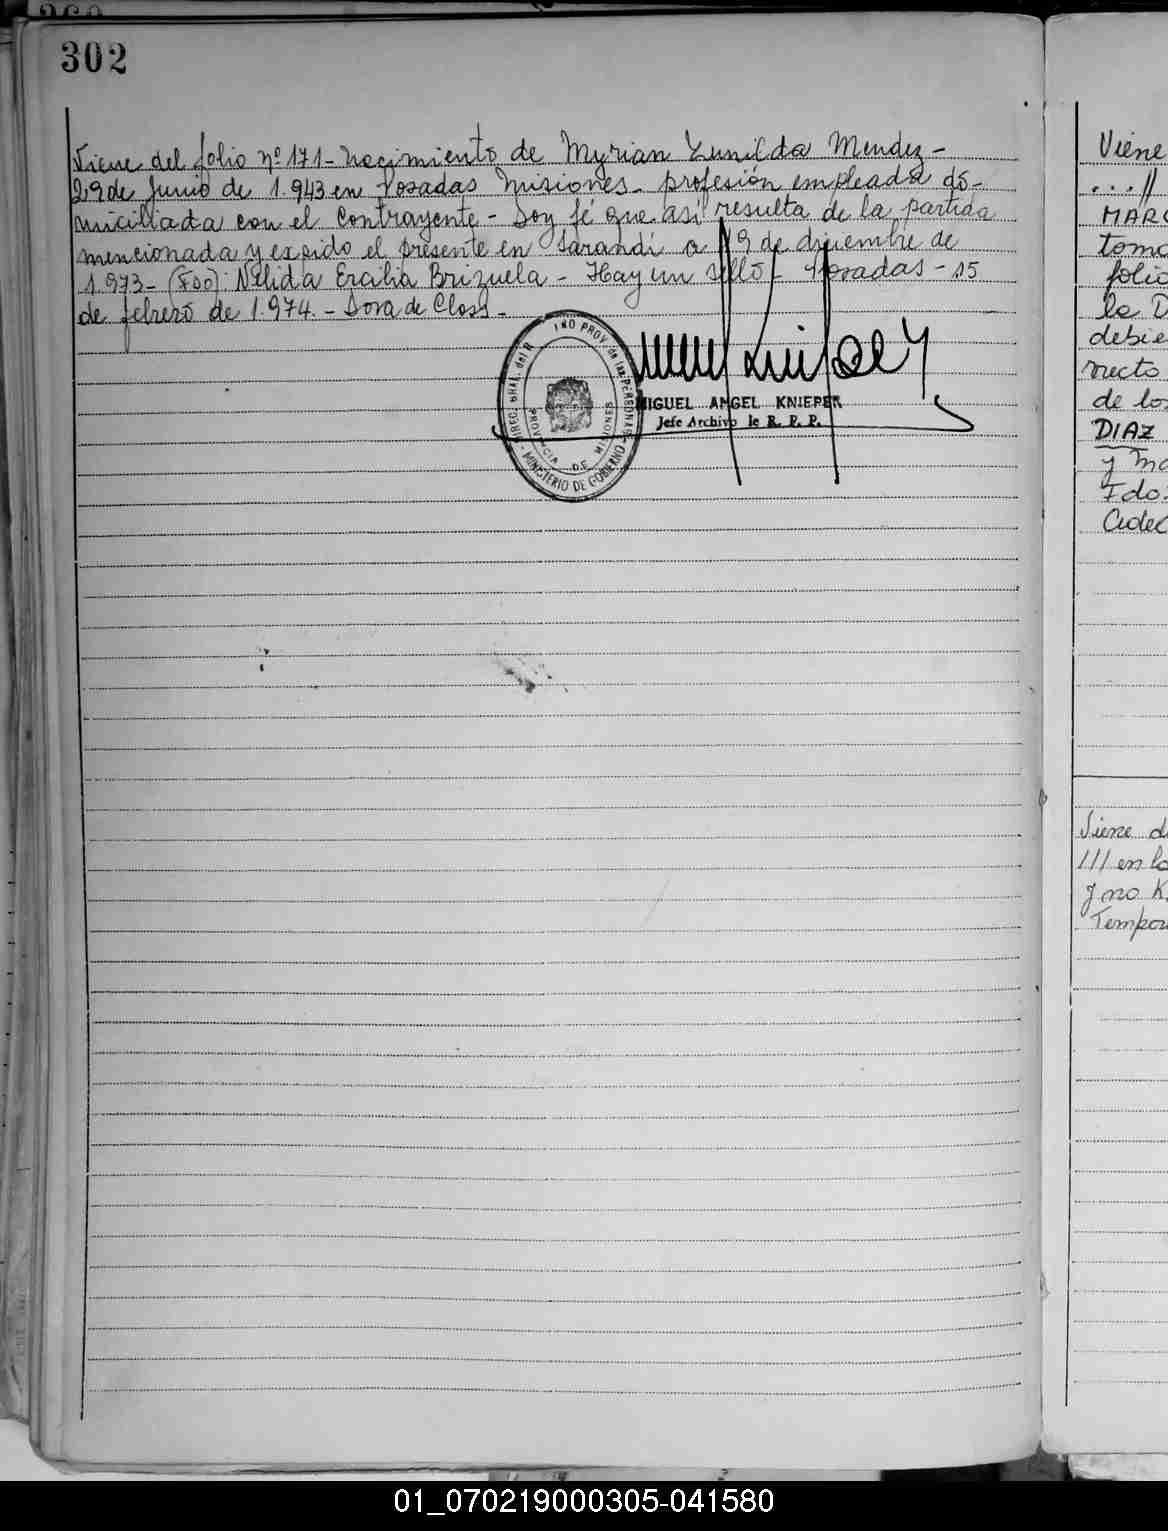 302
Viene del folio Nº 171 - Nacimiento de Myrian Lunilda Mendez -
29 de Junio de 1.943 en Posadas Misiones - profesión empleada do-
miciliada con el contrayente - Doy fé que así resulta de la partida
mencionada y expido el presente en Sarandí a 19 de diciembre de
1.973 - (Fdo): Nélida Ercilia Brizuela - Hay un sello - Posadas - 15
de febrero de 1.974. - Dora de Closs -
DIREC. GRAL. del R PROV. de las PERSONAS
PROVINCIA DE MISIONES
MINISTERIO DE GOBIERNO
MIGUEL ANGEL KNIEPER
Jefe Archivo de R. P. P.
Viene
...//
MARC
toma
folio
la D
debie
recto
de lo
DIAZ
y ma
Fdo:
Cedec
Viene d
/// en la
y no K
Tempor
01_070219000305-041580